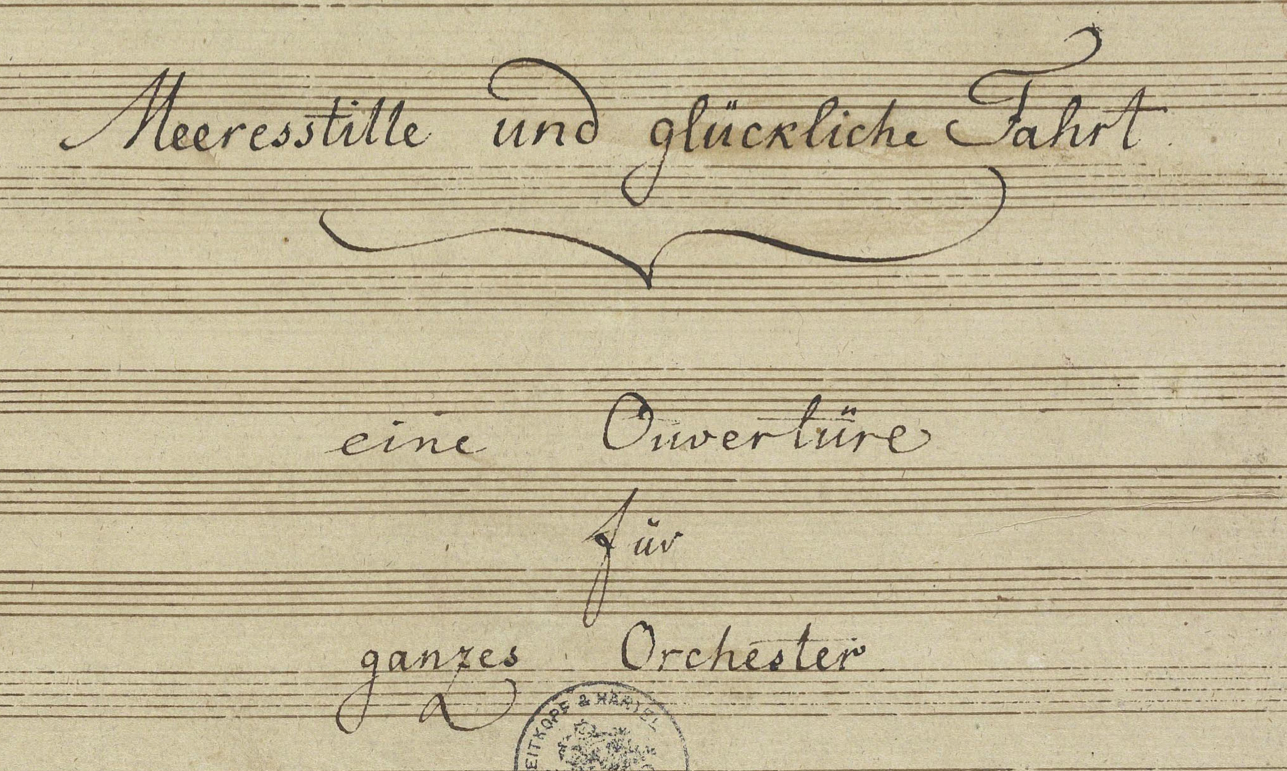 Meeresstille und glückliche Fahrt
eine Ouvertüre
für
ganzes Orchester
EITKOPF & HÄRTEL